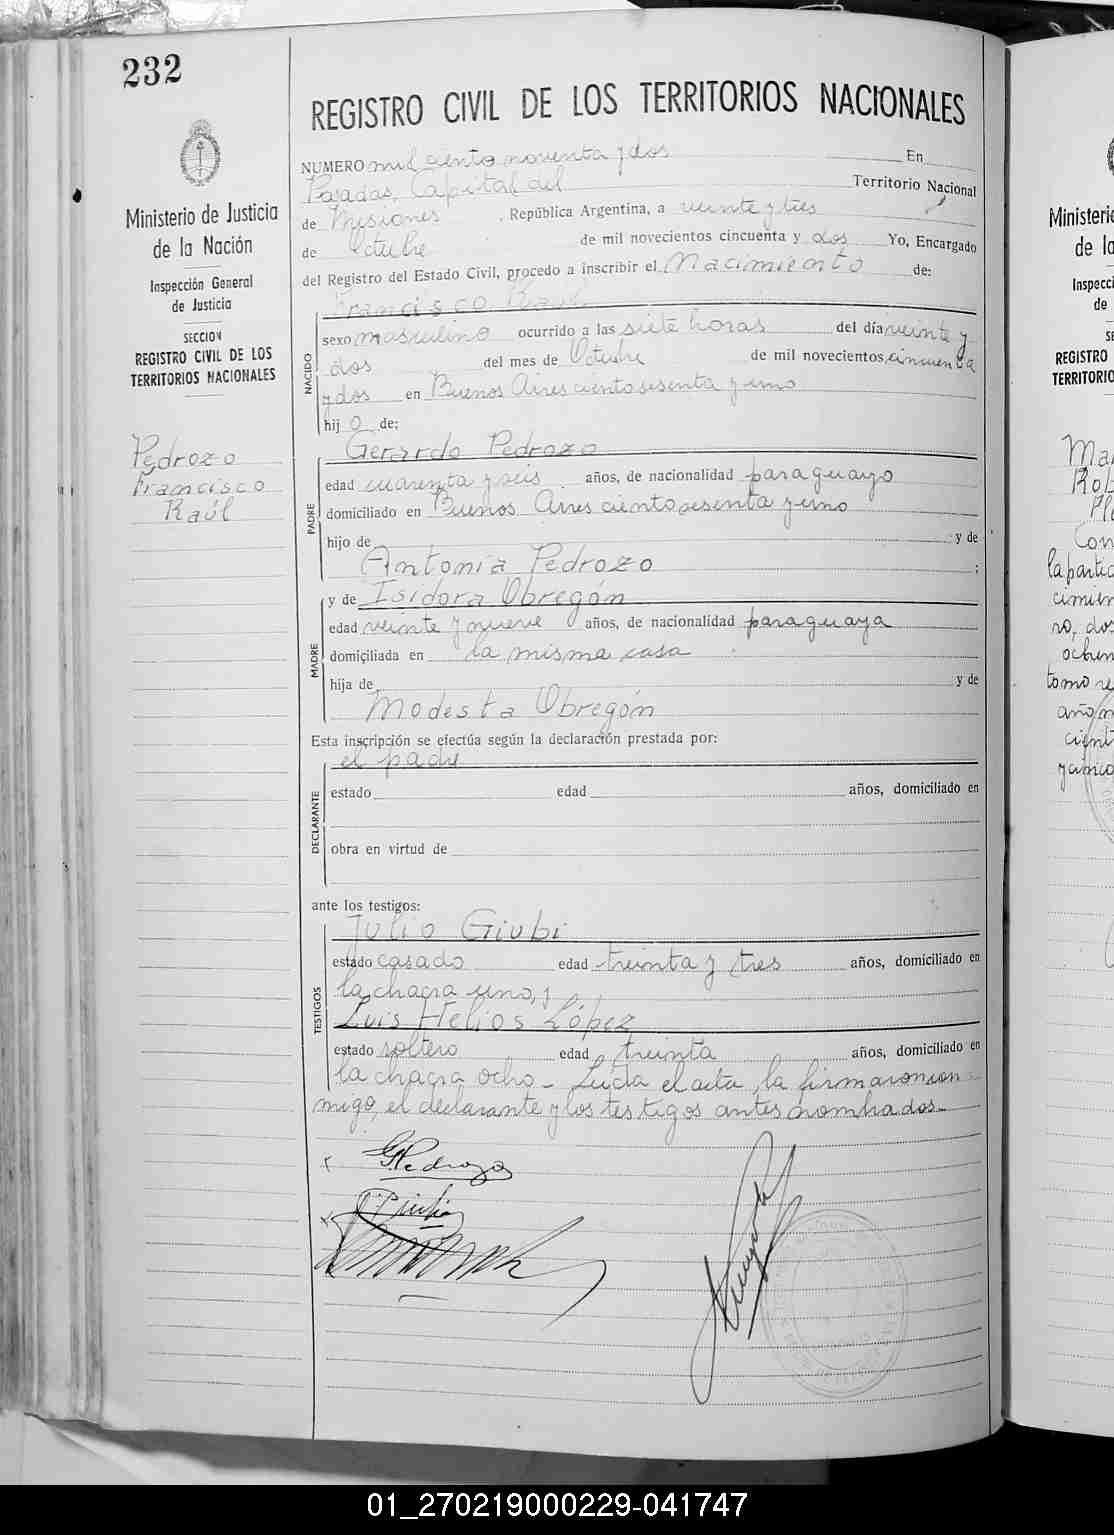 232
Ministerio de Justicia
de la Nación
Inspección General
de Justicia
SECCION
REGISTRO CIVIL DE LOS
TERRITORIOS NACIONALES
Pedrozo
Francisco
Raúl
REGISTRO CIVIL DE LOS TERRITORIOS NACIONALES
NUMERO mil ciento noventa y dos En
Posadas, Capital del Territorio Nacional
de Misiones, República Argentina, a veinte y tres
de Octubre de mil novecientos cincuenta y dos Yo, Encargado
del Registro del Estado Civil, procedo a inscribir el Nacimiento de:
Francisco Raúl
NACIDO
sexo masculino ocurrido a las siete horas del día veinte y
dos del mes de Octubre de mil novecientos, cincuenta
y dos en Buenos Aires ciento sesenta y uno
hijo de:
Gerardo Pedrozo
PADRE
edad cuarenta y seis años, de nacionalidad paraguayo
domiciliado en Buenos Aires ciento sesenta y uno
hijo de y de
Antonia Pedrozo ;
y de Isidora Obregón
MADRE
edad veinte y nueve años, de nacionalidad paraguaya
domiciliada en la misma casa
hija de y de
Modesta Obregón
Esta inscripción se efectúa según la declaración prestada por:
el padre
DECLARANTE
estado edad años, domiciliado en
obra en virtud de
ante los testigos:
Julio Giubi
TESTIGOS
estado casado edad treinta y tres años, domiciliado en
la chacra uno, y
Luis Helios López
estado soltero edad treinta años, domiciliado en
la chacra ocho - Leída el acta, la firmaron con
migo, el declarante y los testigos antes nombrados.-
GPedrozo
Ministerio
de la
Inspecci
de
SE
REGISTRO
TERRITORIO
Con
la partic
cimien
ro, dos
ochen
tomo re
año m
cient
y cinco
01_270219000229-041747